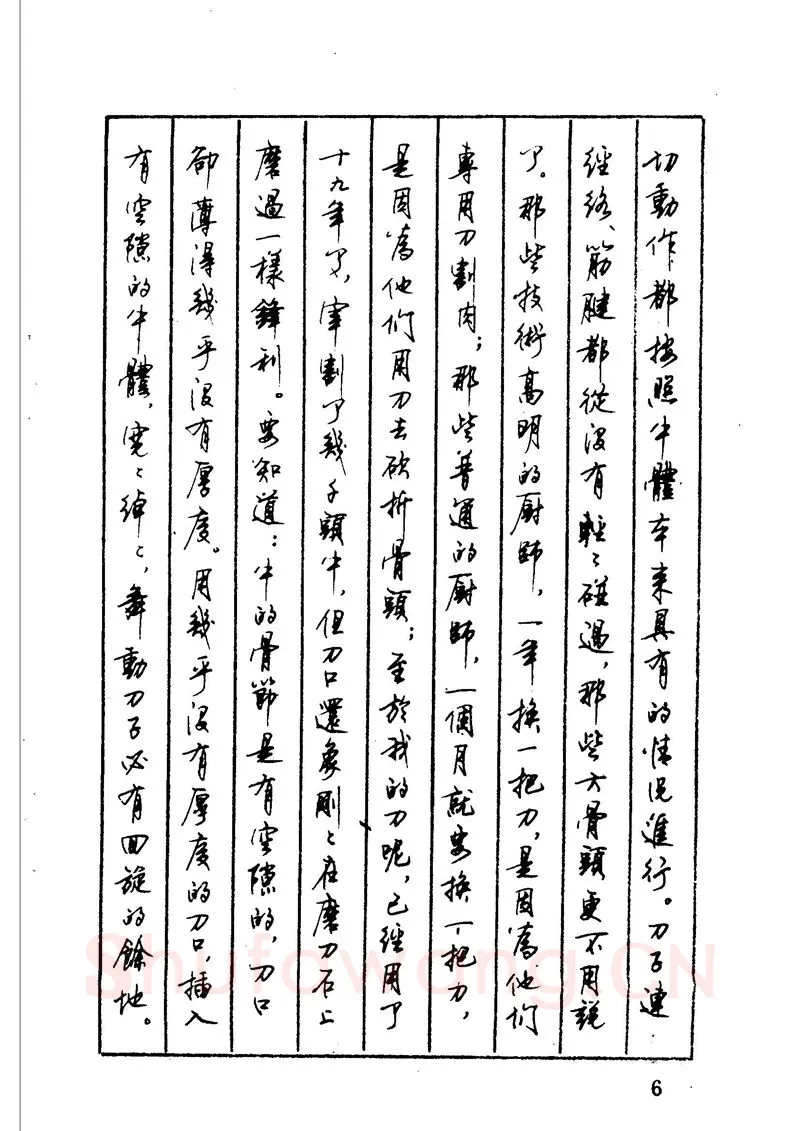 切動作都按照牛體本来具有的情况進行。刀子連
經络、筋腱都從没有輕〻碰過，那些大骨頭更不用説
了。那些技術高明的厨師，一年换一把刀，是因為他们
專用刀割肉；那些普通的厨師，一個月就要换一把刀，
是因為他们用刀去砍折骨頭；至於我的刀呢，已經用了
十九年了，宰割了幾千頭牛，但刀口還象剛〻在磨刀石上
磨過一樣鋒利。要知道：牛的骨節是有空隙的，刀口
却薄得幾乎没有厚度。用幾乎没有厚度的刀口，插入
有空隙的牛體，寛〻綽〻，舞動刀子必有回旋的餘地。
Shufawang.CN
6